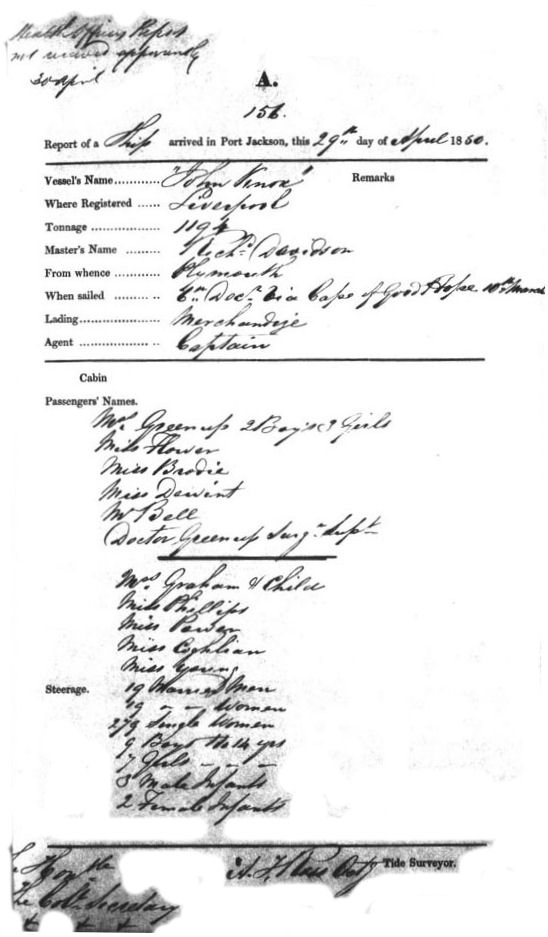 Health Officers Report
not received apparently
30 April
A.
156.
Report of a Ship arrived in Port Jackson, this 29th day of April 1850.
Vessel's Name ............ "John Knox" Remarks
Where Registered ...... Liverpool
Tonnage ................... 1194
Master's Name ........... Davidson
From whence ............ Plymouth
When sailed ......... .. 6th Decr. Via Cape of Good Hope 10th March
Lading ..................... Merchandize
Agent .................. .. Captain
Cabin
Passengers' Names.
Mrs Greenup 2 Boys & Girls
Miss Flower
Miss Brodie
Miss
Mr Bell
Doctor Greenup Surgn. Supt
Mrs. Graham & Child
Miss Phillips
Miss Power
Miss Coghlan
Miss Young
Steerage. 19 Married Men
19 - - Women
279 Single Women
9 Boys to 14 yrs
17 Girls - - -
3 Male Infants
2 Female Infants
Tide Surveyor.
The Honble
The Col. Secretary